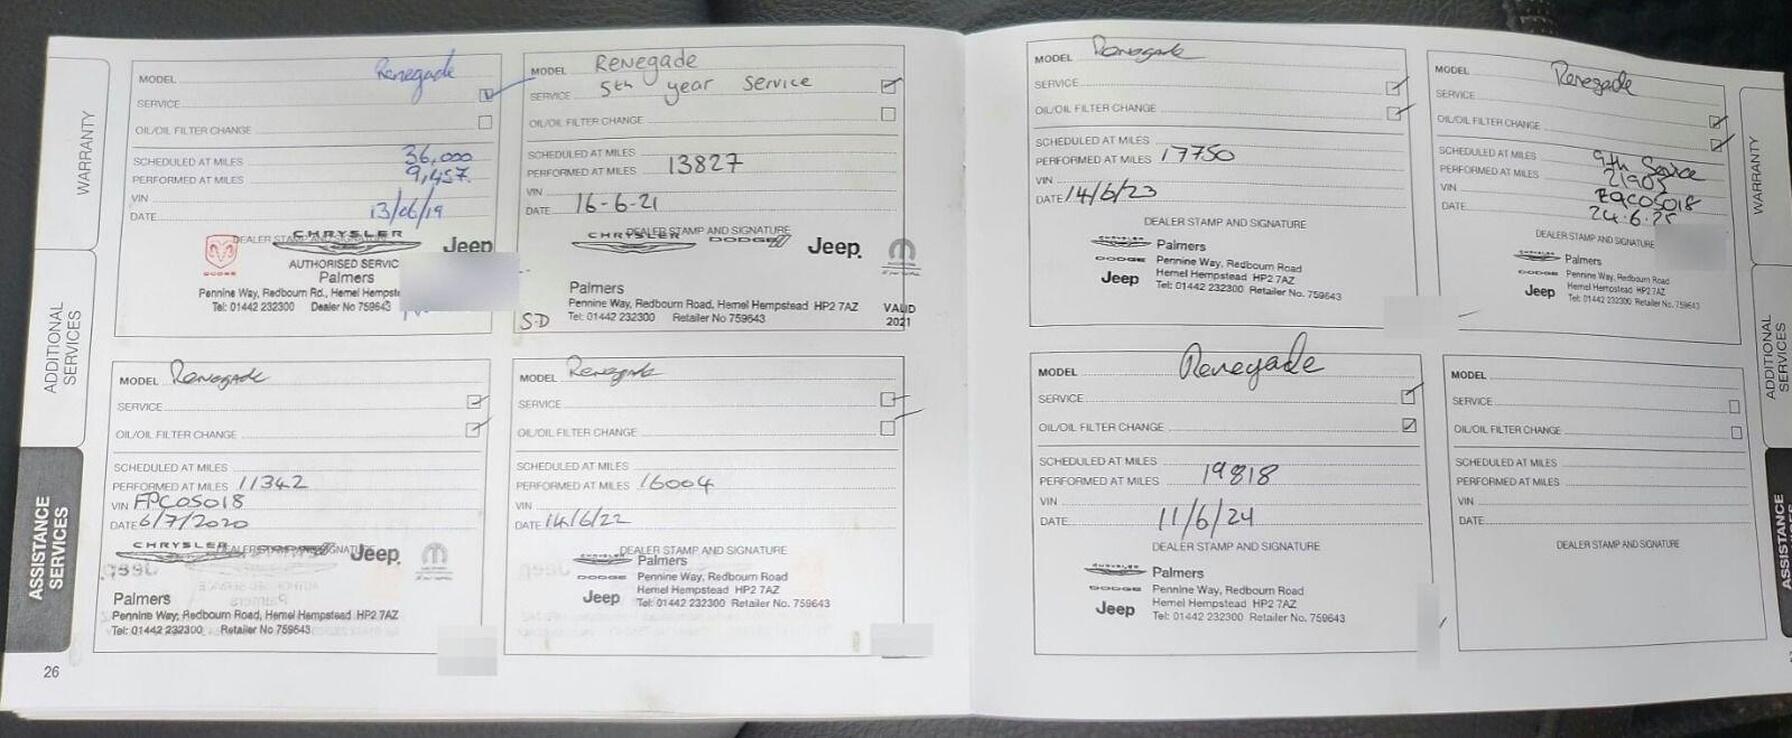 WARRANTY
ADDITIONAL
SERVICES
ASSISTANCE
SERVICES
MODEL Renegade
SERVICE
OIL/OIL FILTER CHANGE
SCHEDULED AT MILES 36,000
PERFORMED AT MILES 9,457
VIN
DATE 13/06/19
DEALER STAMP AND SIGNATURE
CHRYSLER
DODGE
Jeep
AUTHORISED SERVIC
Palmers
Pennine Way, Redbourn Rd., Hemel Hempste
Tel: 01442 232300 Dealer No 759643
MODEL Renegade
SERVICE
OIL/OIL FILTER CHANGE
SCHEDULED AT MILES
PERFORMED AT MILES 11342
VIN FPC05018
DATE 6/7/2020
DEALER STAMP AND SIGNATURE
CHRYSLER
Jeep
Palmers
Pennine Way, Redbourn Road, Hemel Hempstead HP2 7AZ
Tel: 01442 232300 Retailer No 759643
26
MODEL Renegade
SERVICE 5th year Service
OIL/OIL FILTER CHANGE
SCHEDULED AT MILES
PERFORMED AT MILES 13827
VIN
DATE 16-6-21
DEALER STAMP AND SIGNATURE
CHRYSLER DODGE Jeep
Palmers
Pennine Way, Redbourn Road, Hemel Hempstead HP2 7AZ
Tel: 01442 232300 Retailer No 759643
S-D
VALID
2021
MODEL Renegade
SERVICE
OIL/OIL FILTER CHANGE
SCHEDULED AT MILES
PERFORMED AT MILES 16004
VIN
DATE 14/6/22
DEALER STAMP AND SIGNATURE
CHRYSLER
DODGE
Jeep
Palmers
Pennine Way, Redbourn Road
Hemel Hempstead HP2 7AZ
Tel: 01442 232300 Retailer No. 759643
MODEL Renegade
SERVICE
OIL/OIL FILTER CHANGE
SCHEDULED AT MILES
PERFORMED AT MILES 17750
VIN
DATE 14/6/23
DEALER STAMP AND SIGNATURE
CHRYSLER
DODGE
Jeep
Palmers
Pennine Way, Redbourn Road
Hemel Hempstead HP2 7AZ
Tel: 01442 232300 Retailer No. 759643
MODEL Renegade
SERVICE
OIL/OIL FILTER CHANGE
SCHEDULED AT MILES
PERFORMED AT MILES 19818
VIN
DATE 11/6/24
DEALER STAMP AND SIGNATURE
CHRYSLER
DODGE
Jeep
Palmers
Pennine Way, Redbourn Road
Hemel Hempstead HP2 7AZ
Tel: 01442 232300 Retailer No. 759643
MODEL Renegade
SERVICE
OIL/OIL FILTER CHANGE
SCHEDULED AT MILES 9th Service
PERFORMED AT MILES 21905
VIN
DATE 24.6.25
DEALER STAMP AND SIGNATURE
CHRYSLER
DODGE
Jeep
Palmers
Pennine Way, Redbourn Road
Hemel Hempstead HP2 7AZ
Tel: 01442 232300 Retailer No. 759643
MODEL
SERVICE
OIL/OIL FILTER CHANGE
SCHEDULED AT MILES
PERFORMED AT MILES
VIN
DATE
DEALER STAMP AND SIGNATURE
WARRANTY
ADDITIONAL
SERVICES
ASSISTANCE